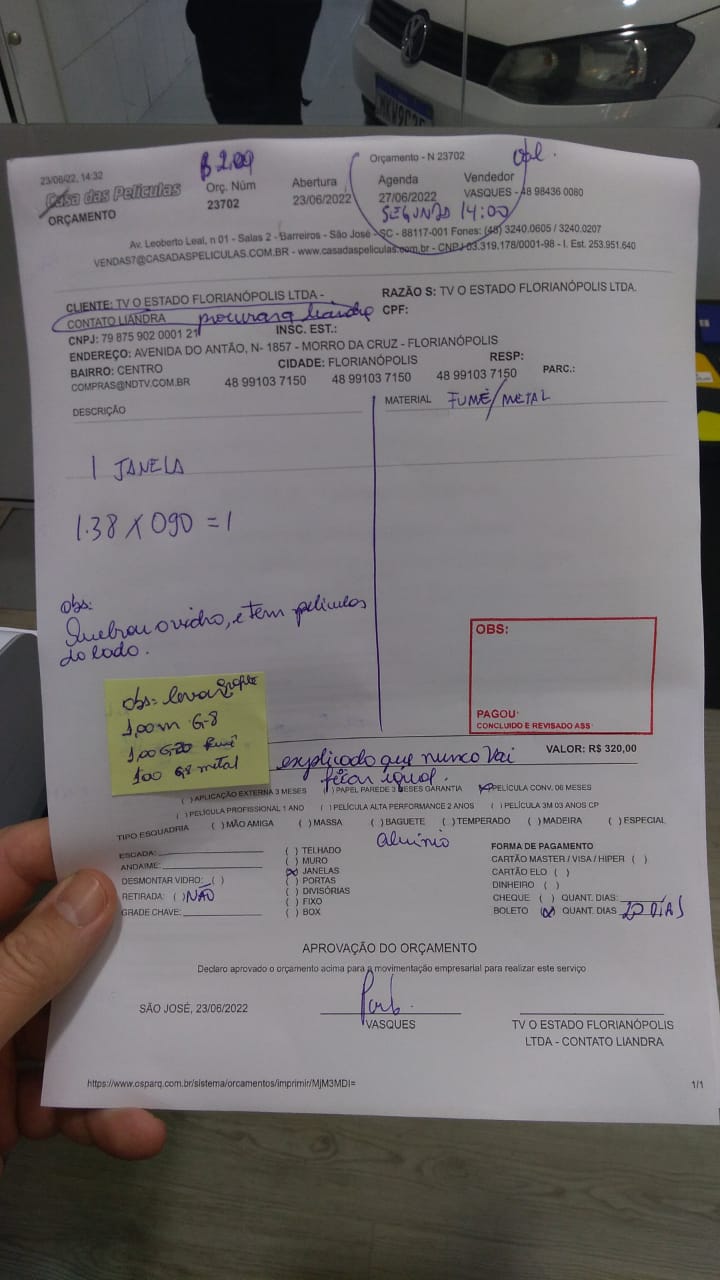 23/06/22, 14:32
Casa das Películas
ORÇAMENTO
Orç. Núm
23702
Abertura
23/06/2022
Orçamento - N 23702
Agenda
27/06/2022
SEGUNDA 14:00
Vendedor
VASQUES - 48 98436 0080
Av. Leoberto Leal, n 01 - Salas 2 - Barreiros - São José - SC - 88117-001 Fones: (48) 3240.0605 / 3240.0207
VENDAS7@CASADASPELICULAS.COM.BR - www.casadaspeliculas.com.br - CNPJ 03.319.178/0001-98 - I. Est. 253.951.640
CLIENTE: TV O ESTADO FLORIANÓPOLIS LTDA - RAZÃO S: TV O ESTADO FLORIANÓPOLIS LTDA.
CONTATO LIANDRA procurar a Liandra CPF:
CNPJ: 79 875 902 0001 21 INSC. EST.:
ENDEREÇO: AVENIDA DO ANTÃO, N- 1857 - MORRO DA CRUZ - FLORIANÓPOLIS
BAIRRO: CENTRO CIDADE: FLORIANÓPOLIS RESP:
COMPRAS@NDTV.COM.BR 48 99103 7150 48 99103 7150 48 99103 7150 PARC.:
DESCRIÇÃO
MATERIAL FUMÊ/METAL
1 JANELA
1.38 X 090 = 1
Obs:
Quebrou o vidro, e tem películas
do lado.
OBS:
PAGOU:
CONCLUIDO E REVISADO ASS:
obs: levar
1,00m G-8
1,00 G20 fumê
100 G8 metal
explicado que nunca vai
ficar igual.
VALOR: R$ 320,00
( ) APLICAÇÃO EXTERNA 3 MESES ( ) PAPEL PAREDE 3 MESES GARANTIA (X) PELÍCULA CONV. 06 MESES
( ) PELÍCULA PROFISSIONAL 1 ANO ( ) PELÍCULA ALTA PERFORMANCE 2 ANOS ( ) PELÍCULA 3M 03 ANOS CP
TIPO ESQUADRIA ( ) MÃO AMIGA ( ) MASSA ( ) BAGUETE ( ) TEMPERADO ( ) MADEIRA ( ) ESPECIAL
aluminio
ESCADA:
ANDAIME:
DESMONTAR VIDRO: ( )
RETIRADA: ( ) NÃO
GRADE CHAVE:
( ) TELHADO
( ) MURO
(X) JANELAS
( ) PORTAS
( ) DIVISÓRIAS
( ) FIXO
( ) BOX
FORMA DE PAGAMENTO
CARTÃO MASTER / VISA / HIPER ( )
CARTÃO ELO ( )
DINHEIRO ( )
CHEQUE ( ) QUANT. DIAS:
BOLETO (X) QUANT. DIAS 20 DIAS
APROVAÇÃO DO ORÇAMENTO
Declaro aprovado o orçamento acima para a movimentação empresarial para realizar este serviço
SÃO JOSÉ, 23/06/2022
VASQUES
TV O ESTADO FLORIANÓPOLIS
LTDA - CONTATO LIANDRA
https://www.osparq.com.br/sistema/orcamentos/imprimir/MjM3MDI=
1/1